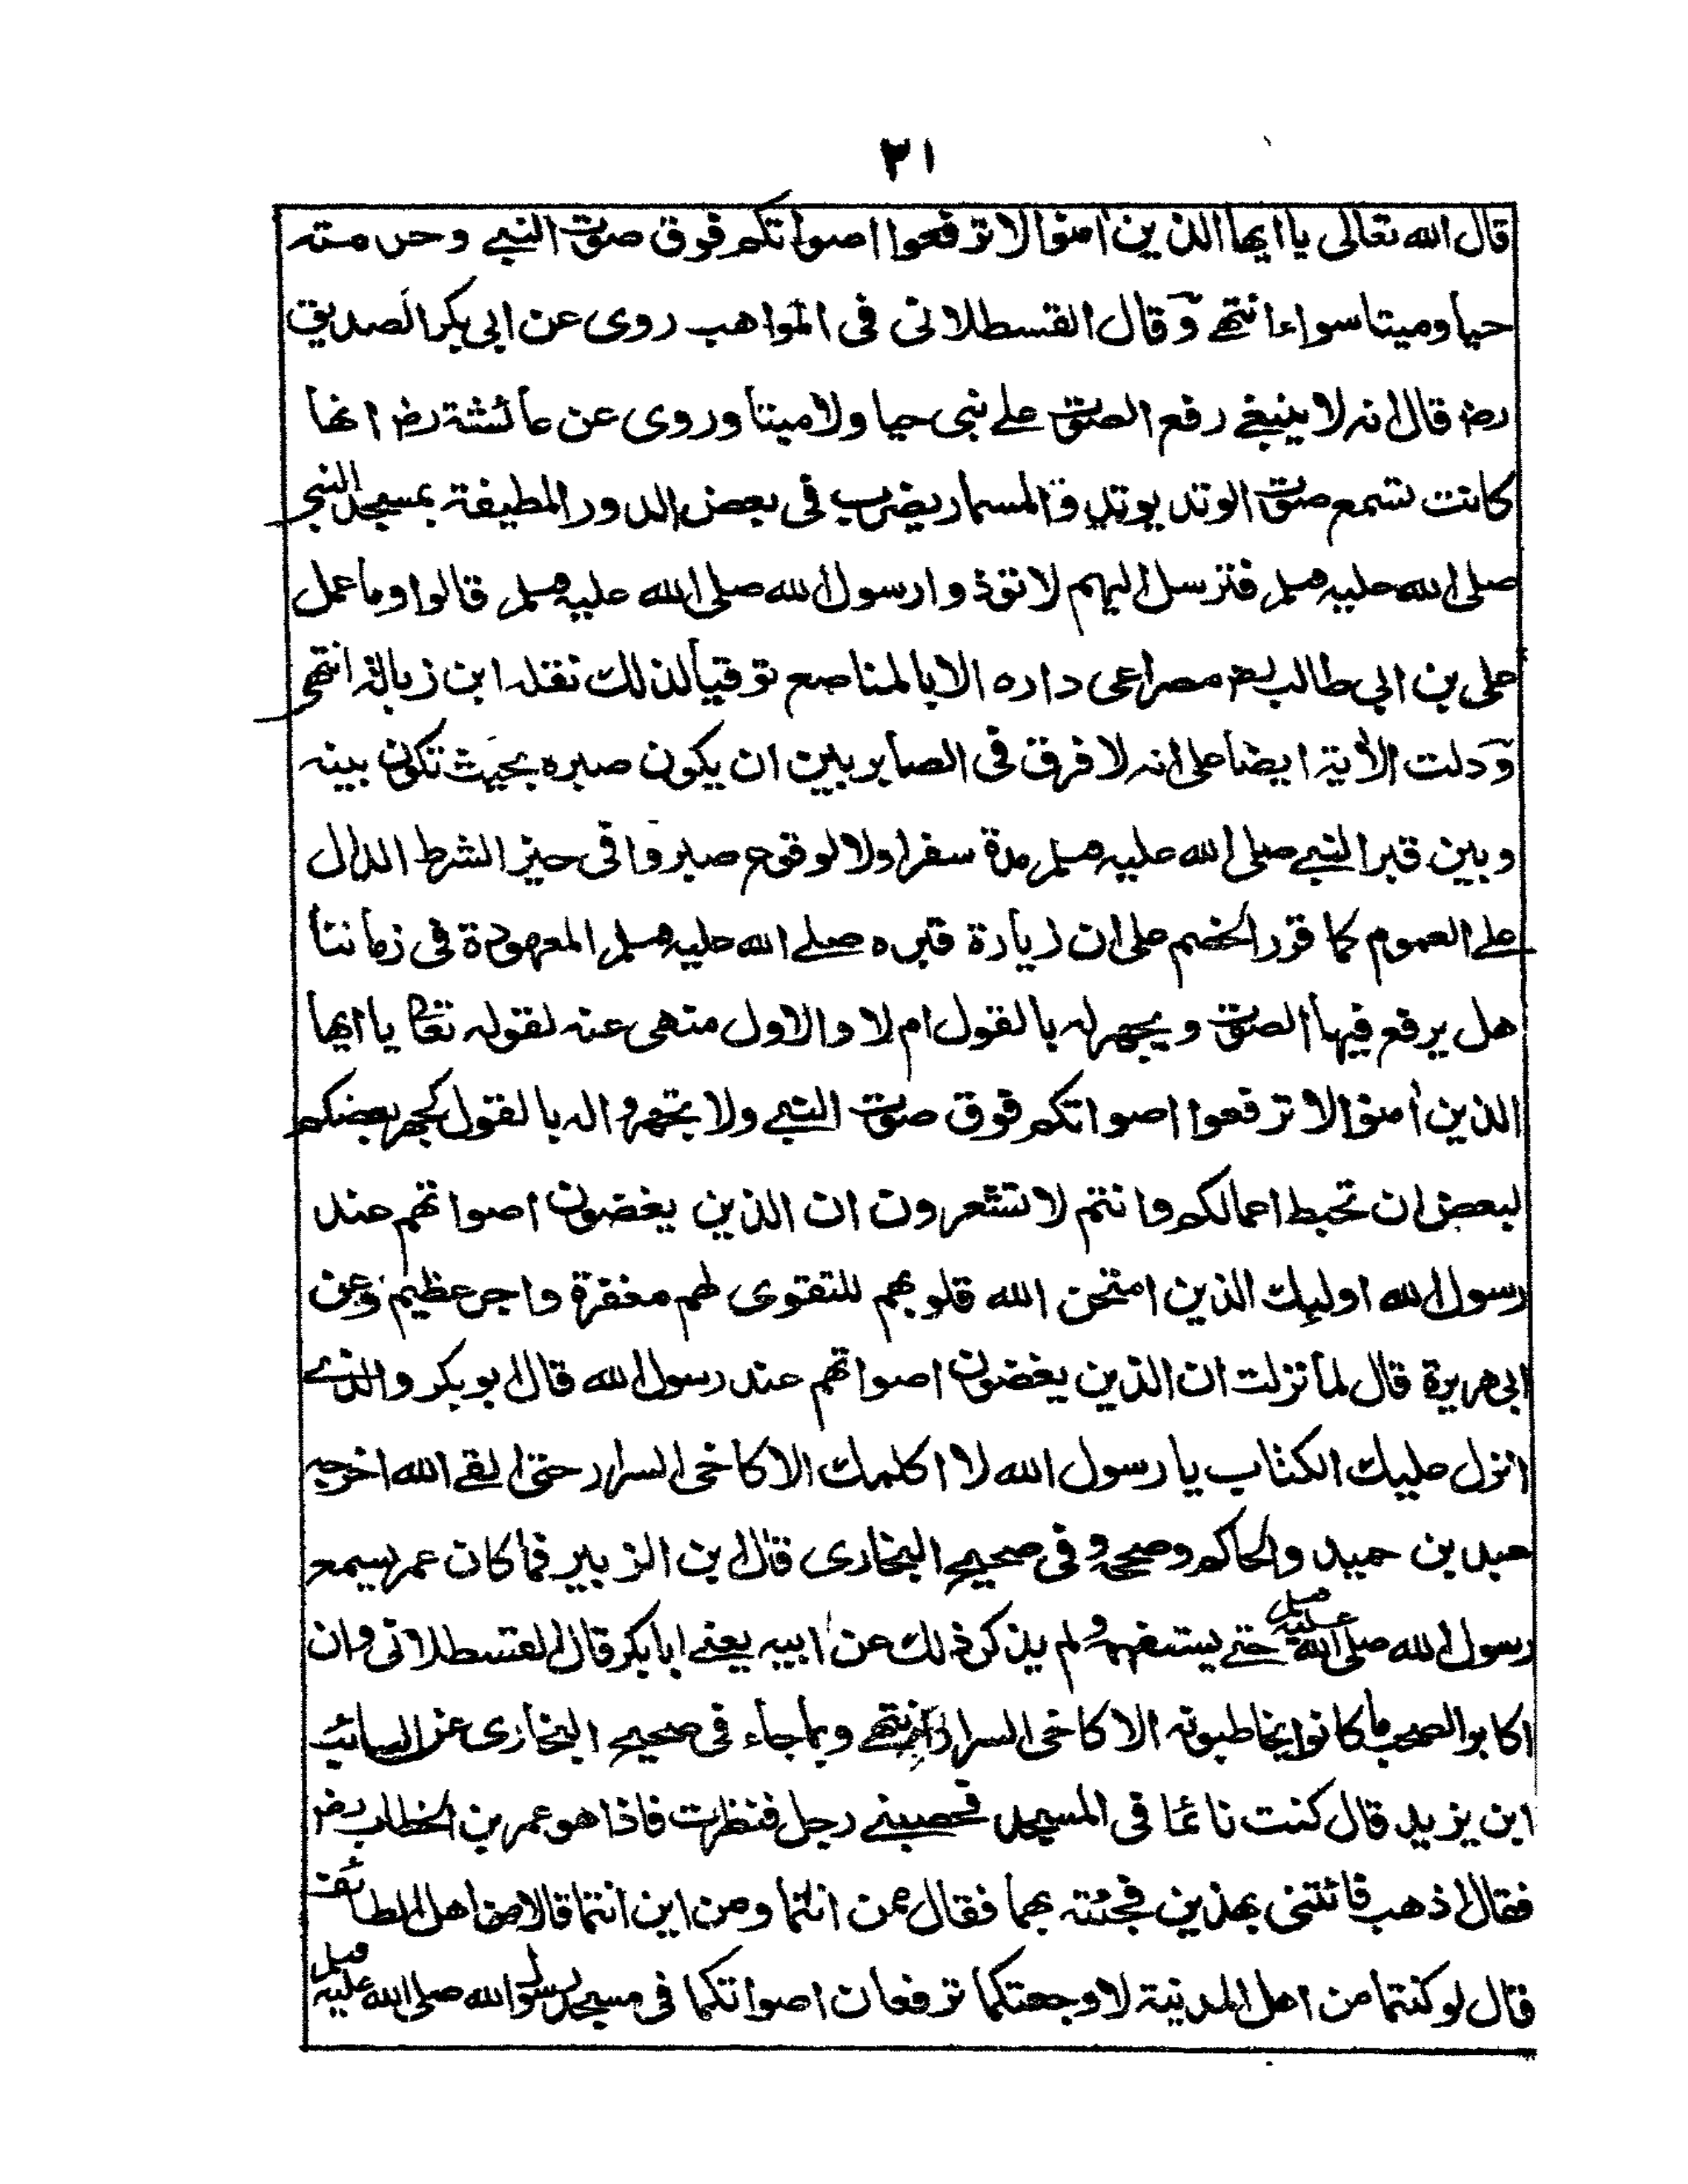 ٢١
قال الله تعالى يا ايها الذين اٰمنوا لا ترفعوا اصواتكم فوق صوت النبي وحرمته
حيا وميتا سواء انتهى وقال القسطلاني في المواهب روى عن ابي بكر الصديق
رض قال انه لا ينبغي رفع الصوت على نبي حيا ولا ميتا وروى عن عائشة رض انها
كانت تسمع صوت الوتد يوتد والمسمار يضرب في بعض الدور المطيفة بمسجد النبي
صلى الله عليه وسلم فترسل اليهم لا تؤذوا رسول الله صلى الله عليه وسلم قالوا وما عمل
على بن ابي طالب رض مصراعى داره الا بالمناصع توقيا لذلك نقله ابن زبالة انتهى
ودلت الآية ايضا على انه لا فرق في الصابر بين ان يكون صبره بحيث تكون بينه
وبين قبر النبي صلى الله عليه وسلم مدة سفر اولا لوقوع صبروا في حيز الشرط الدال
على العموم كما قرر الخصم على ان زيارة قبره صلى الله عليه وسلم المعهودة في زماننا
هل يرفع فيها الصوت ويجهر له بالقول ام لا والاول منهى عنه لقوله تعالى يا ايها
الذين اٰمنوا لا ترفعوا اصواتكم فوق صوت النبي ولا تجهروا له بالقول كجهر بعضكم
لبعض ان تحبط اعمالكم وانتم لا تشعرون ان الذين يغضون اصواتهم عند
رسول الله اولئك الذين امتحن الله قلوبهم للتقوى لهم مغفرة واجر عظيم وعن
ابى هريرة قال لما نزلت ان الذين يغضون اصواتهم عند رسول الله قال ابو بكر والذي
انزل عليك الكتاب يا رسول الله لا اكلمك الا كاخى السرار حتى القى الله اخرجه
عبد بن حميد والحاكم وصححه وفى صحيح البخارى قال ابن الزبير فما كان عمر يسمع
رسول الله صلى الله عليه وسلم حتى يستفهمه ولم يذكر ذلك عن ابيه يعنى ابا بكر قال القسطلانى وان
اكابر الصحب ما كانوا يخاطبونه الا كاخى السرار انتهى وبما جاء في صحيح البخارى عن السائب
ابن يزيد قال كنت نائما فى المسجد فحصبنى رجل فنظرت فاذا هو عمر بن الخطاب رض
فقال اذهب فائتنى بهذين فجئته بهما فقال ممن انتما ومن اين انتما قالا من اهل الطائف
قال لو كنتما من اهل المدينة لاوجعتكما ترفعان اصواتكما فى مسجد رسول الله صلى الله عليه وسلم